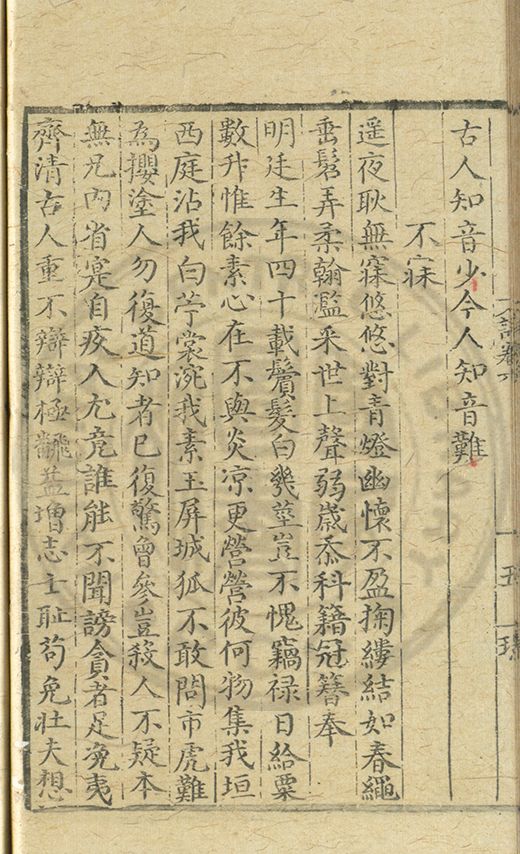 古人知音少今人知音難
不寐
遥夜耿無寐悠悠對青燈幽懷不盈掬縷結如春繩
垂髫弄柔翰濫采世上聲弱歲忝科籍冠簪奉
明廷生年四十載鬢髮白幾莖豈不愧竊祿日給粟
數升惟餘素心在不與炎凉更營營彼何物集我垣
西庭沾我白苧裳涴我素玉屏城狐不敢問市虎難
為攖塗人勿復道知者已復驚曾參豈殺人不疑本
無兄內省寔自疚入尤竟誰能不聞謗貪者足免夷
齊清古人重不辯辯極翻益增志士耻苟免壯夫想